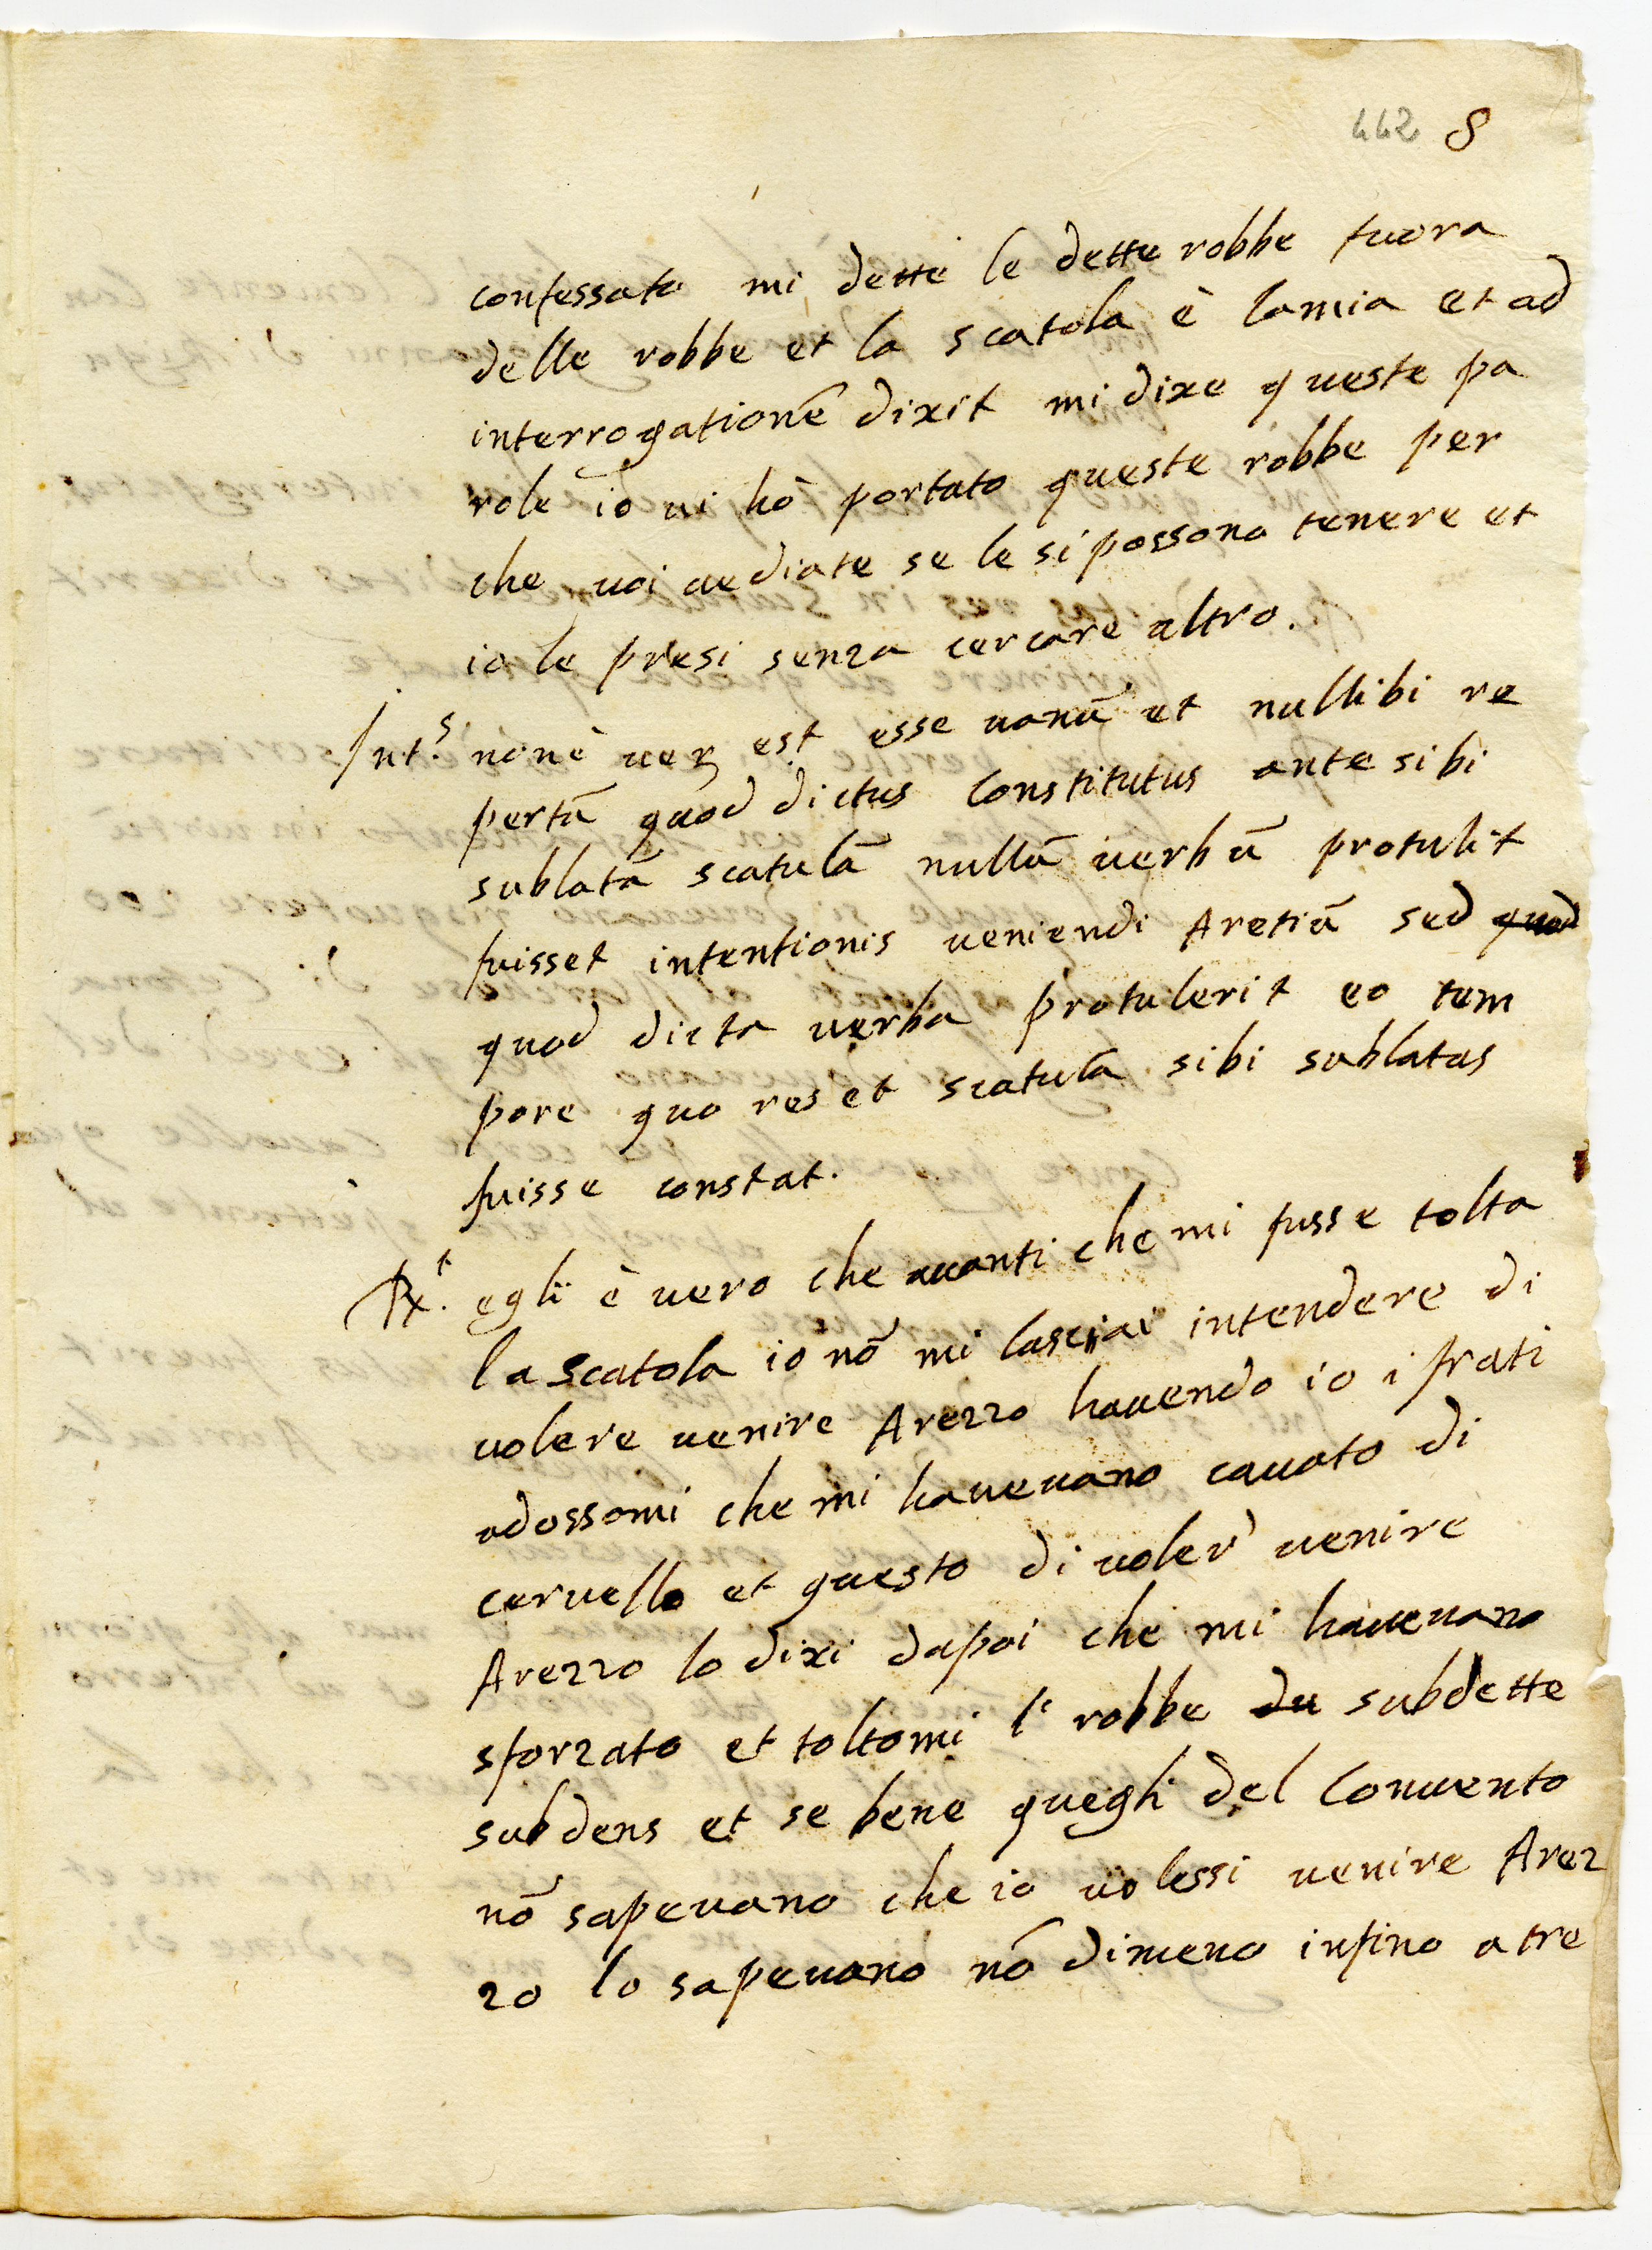 442 8
confessato mi dette le dette robbe fuora
delle robbe et la scatola è la mia et ad
interrogationē dixit mi dixe queste pa
role io ui hò portato queste robbe per
che uoi uediate se le si possono tenere et
io le presi senza cercare altro.
Int.s non è uer est esse uanū et nullibi re
pertū quod dictus Constitutus ante sibi
sublatā scatulā nullū uerbū protulit
fuisset intentionis ueniendi Aretiū sed quod
quod dicta uerba protulerit eo tem
pore quo res et scatulā sibi sublatas
fuisse constat.
Rx.t egli è uero che auanti che mi fusse tolta
la scatola io nō mi lasciai intendere di
uolere uenire Arezzo hauendo io i frati
adossomi che mi haueuano cauato di
ceruello et questo di uoler uenire
Arezzo lo dixi dapoi che mi haueuano
sforzato et toltomi le robbe du subdette
subdens et se bene quegli del Conuento
nō sapeuano che io uolessi uenire Arez
zo lo sapeuano nō dimeno infino a tre